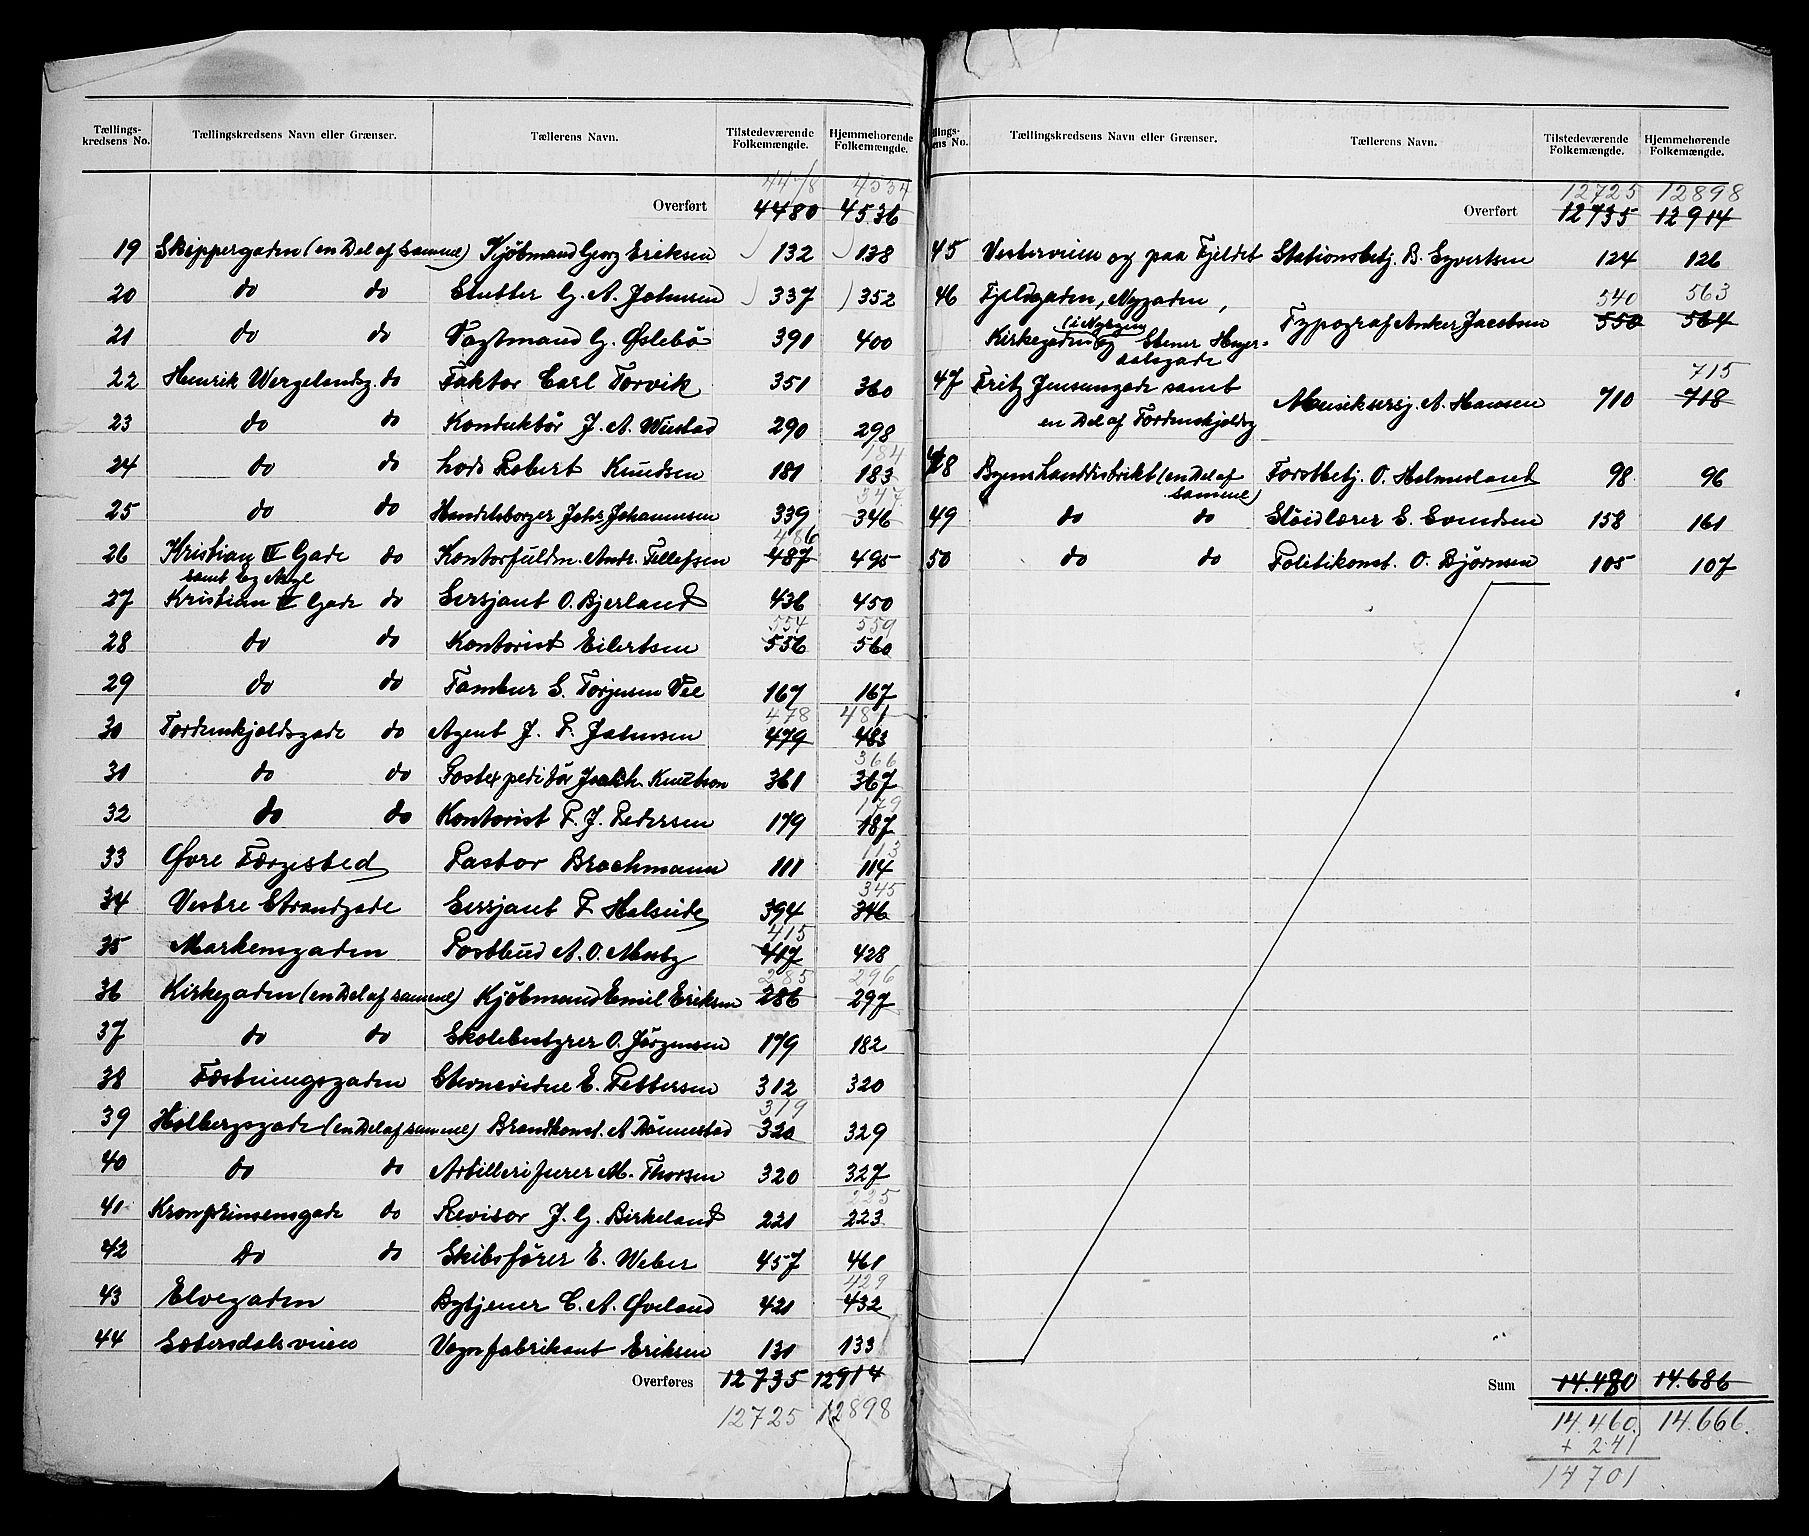 Tællings-kredsens No. Tællingskredsens Navn eller Grænser. Tællerens Navn. Tilstedeværende Folkemængde. Hjemmehørende Folkemængde.
4478 4534
Overført 4480 4536
19 Skippergaden (en Del af samme) Kjøbmand Georg Eriksen 132 138
20 do do G. A. Johnsen 337 352
21 do do Vagtmand G. Øslebø 391 400
22 Henrik Wergelandsg. do Faktor Carl Torvik 351 360
23 do do Konduktør J. A. Wiestad 290 298
184
24 do do Lods Robert Knudsen 181 183
347
25 do do Handelsborger Johs Johannesen 339 346
486
26 Kristian IV Gade do Kontorfuldm. Andr. Tellefsen 487 495
samt
27 Kristian IV Gade do Sersjant O. Bjerland 436 450
554 559
28 do do Kontorist Eilertsen 556 560
29 do do Tambur S. Torjusen Vee 167 167
478 481
30 Tordenskjoldsgade do Agent J. P. Johnsen 479 483
366
31 do do Postexpeditør Joach. Knutson 361 367
179
32 do do Kontorist P. J. Pedersen 179 187
113
33 Øvre Færgested Pastor Brochmann 111 114
345
34 Vestre Strandgade Sersjant P. Halseide 394 346
415
35 Markensgaden Postbud A. O. Mosby 417 428
285 296
36 Kirkegaden (en Del af samme) Kjøbmand Emil Eriksen 286 297
37 do do Skolebestyrer O. Jørgensen 179 182
38 Fæstningsgaden Stevnevidne E. Pettersen 312 320
319
39 Holbergsgade (en Del af samme) Brandkonst. A Rønnestad 320 329
40 do do Artillerifurer M. Thorsen 320 327
225
41 Kronprinsensgade do Revisor J. G. Birkeland 221 223
42 do do Skibsfører E. Weber 457 461
429
43 Elvegaden Bytjener C. A. Øveland 421 432
44 Sætersdalsveien Vognfabrikant Eriksen 131 133
Overføres 12735 12914
12725 12898
llings-ens No. Tællingskredsens Navn eller Grænser. Tællerens Navn. Tilstedeværende Folkemængde. Hjemmehørende Folkemængde.
12725 12898
Overført 12735 12914
45 Vesterveien og paa Fjeldet Stationsbetj. B. Syvertsen 124 126
46 Fjeldgaden, Nygaden, 540 563
(i Nybyen)
Kirkegaden og Ebener Heyer- Typograf Anker Jacobsen 550 564
dalsgade
47 Fritz Jensensgade samt 715
en Del af Tordenskjoldsg Musiksersj. A. Hansen 710 718
48 Byens Landdistrikt (en Del af Forstbetj. O. Holmesland 98 96
samme)
49 do do Sløidlærer E. Evendsen 158 161
50 do do Politikonst. O. Bjørnsen 105 107
Sum 14.480 14.686
14.460 14.666.
+ 241
14701